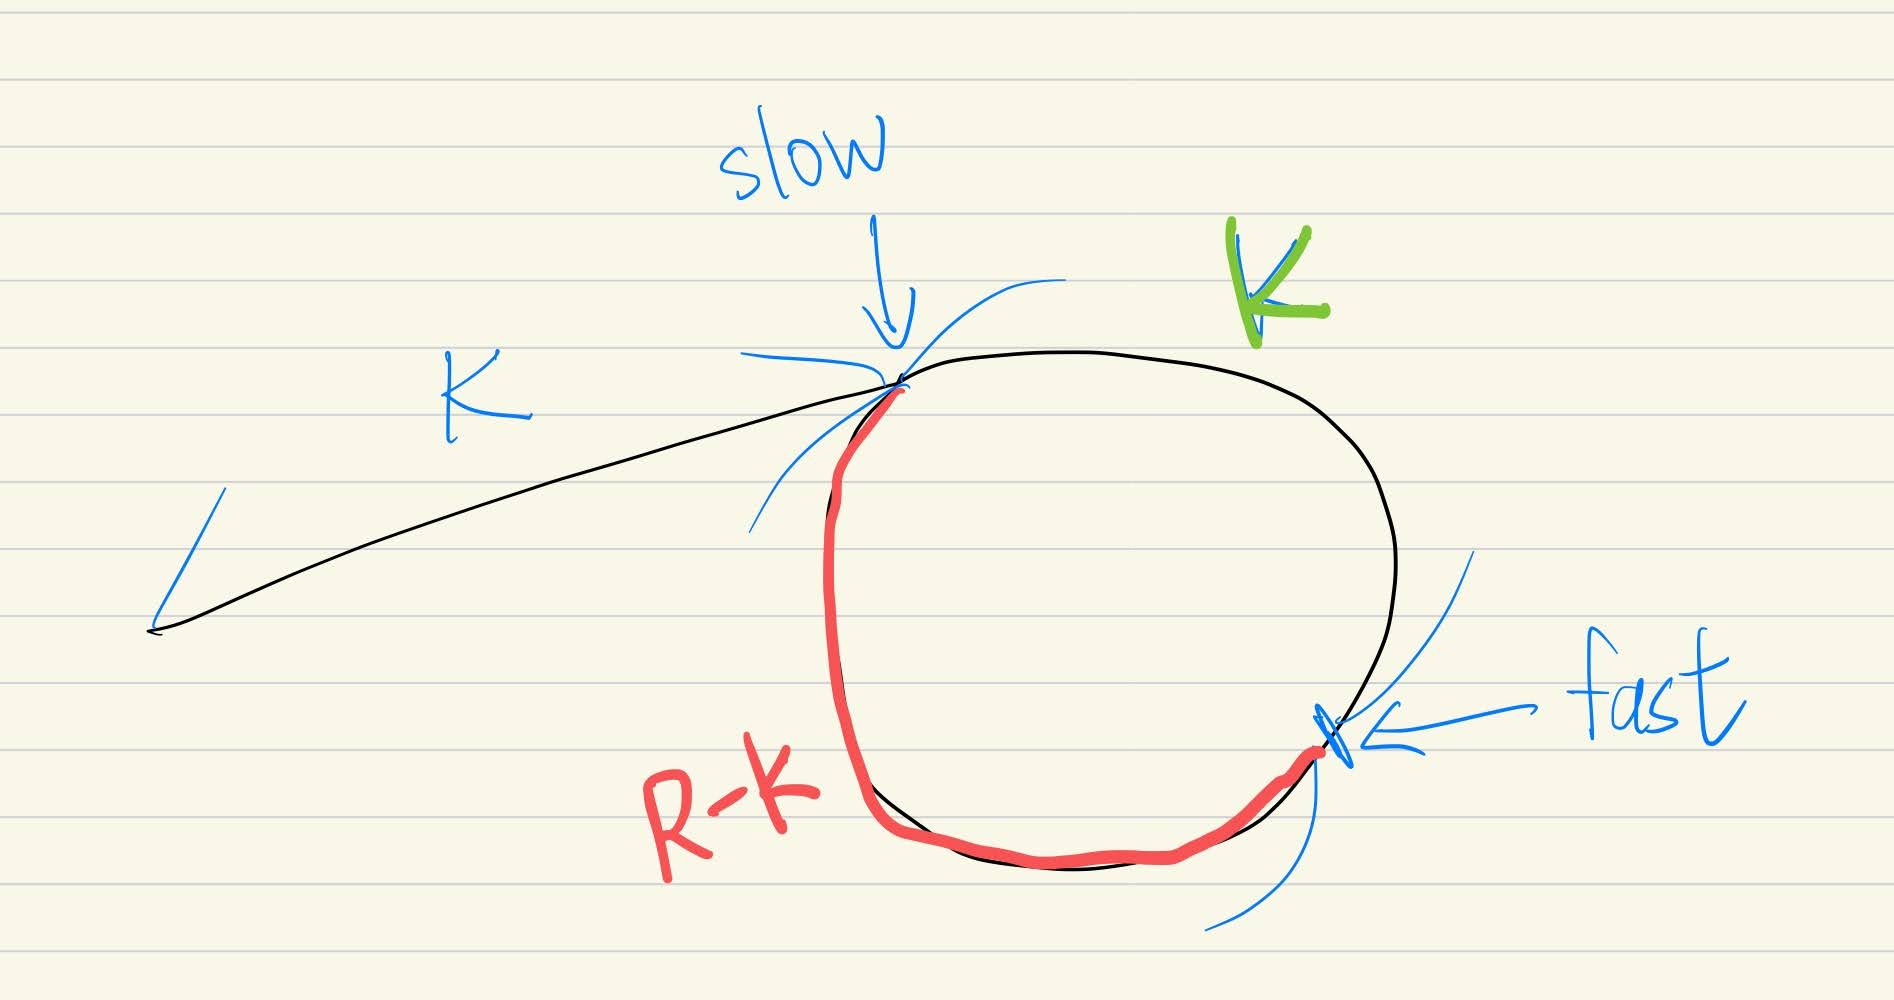 slow
K
K
fast
R-K